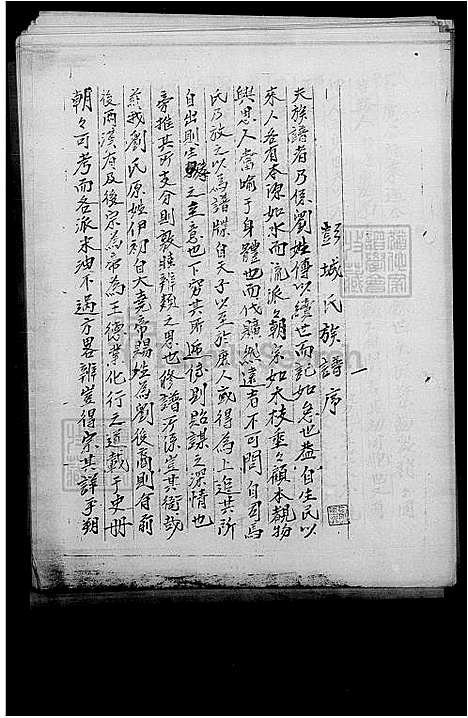 彭城氏族譜序
夫族譜者乃係劉姓傳以續世而記如急世蓋自生民以
來人各有本源如水而流派々朝宗如木枝垂々顧本親物
與思人當喻于身體也而代曠然遠者不可問自司馬
氏乃放之以為譜牒自天子以至於庶人或得為上追其所
自出則生孝之主意也下窮其所遞傳則貽謀之深情也
旁推其所支分則敦睦辨類之思也修譜所係豈其衒哉
茲我劉氏原姓伊祁自大堯帝賜姓為劉後裔則有前
後兩漢有及後宗為帝為王德業化行之道載于史冊
朝々可考而各派末油不過方畧辨豈得宗其詳乎朔